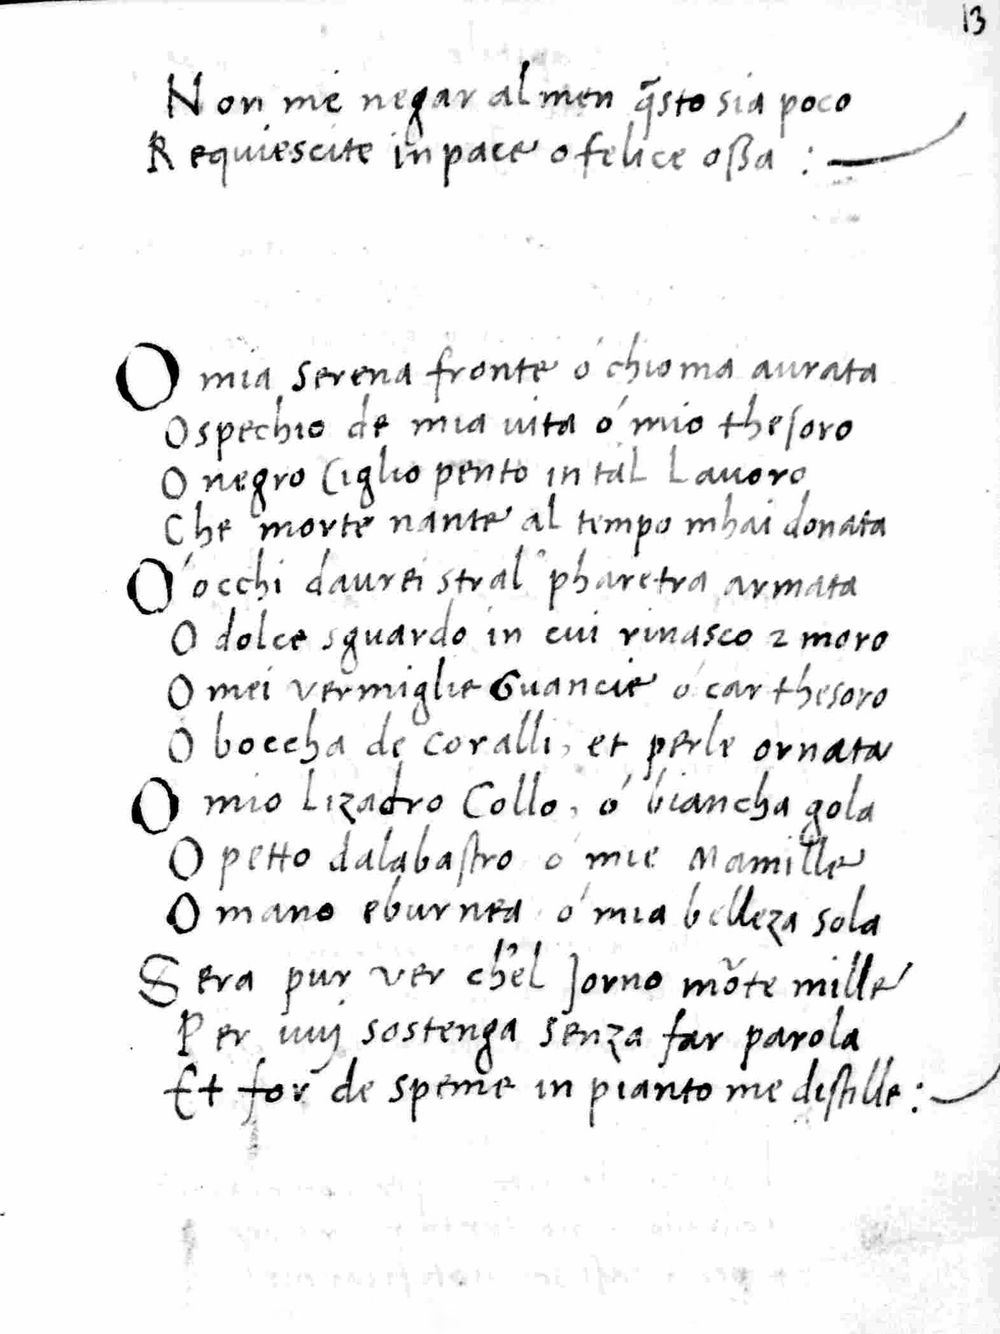 13
Non me negar al men q̃sto sia poco
Requiescite in pace o felice ossa :
O mia serena fronte ó chioma aurata
O spechio de mia uita ó mio thesoro
O negro Ciglio pento in tal Lauoro
Che morte nante al tempo mhai donata
O occhi daurei stral' pharetra armata
O dolce sguardo in cui rinasco 2 moro
O mei vermiglie Guancie ó car thesoro
O boccha de coralli, et perle ornata
O mio Lizadro Collo, ó biancha gola
O petto dalabastro ó mie Mamille
O mano eburnea ó mia belleza sola
Sera pur ver ch'el Jorno mõte mille
Per uuj sostenga senza far parola
Et for de speme in pianto me distille :